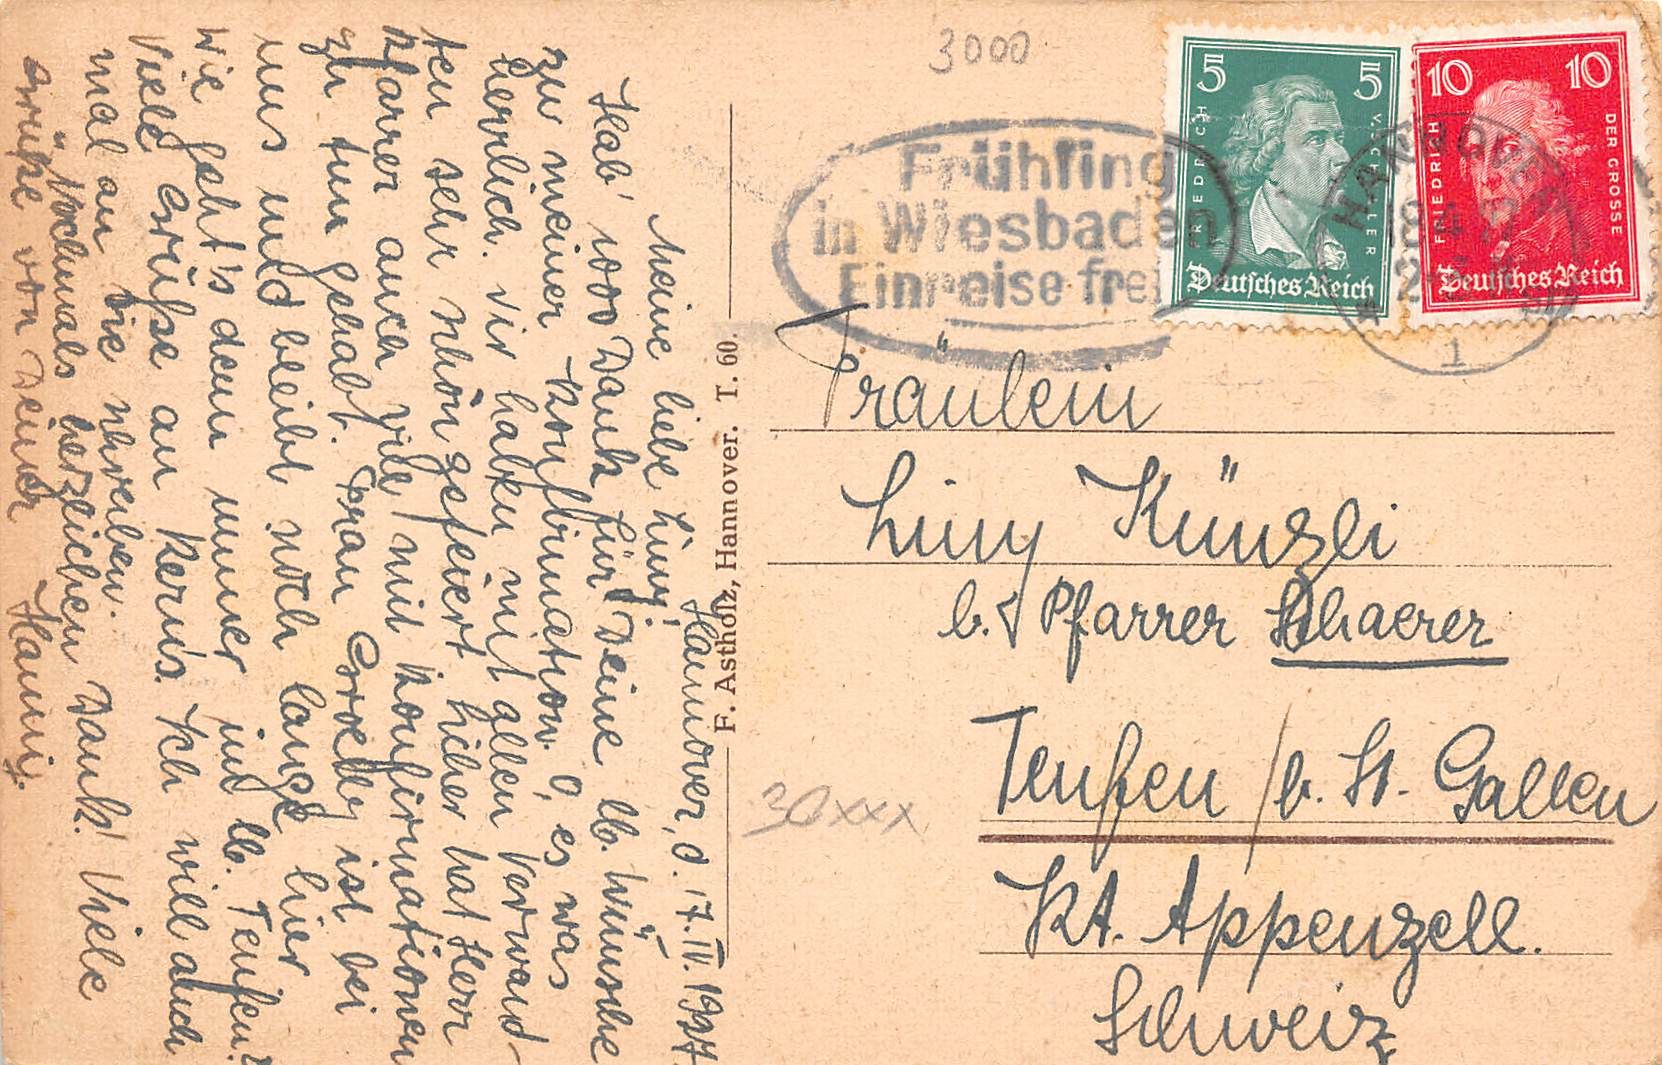 Hannover, d. 17. IV. 1927
Meine liebe Liny!
Hab' 1000 Dank für Deine lb. Wünsche
zur meiner Konfirmation. O, es war
herrlich. Wir haben mit allen Verwand-
ten sehr schön gefeiert. Sicher hat Herr
Pfarrer auch viel mit Konfirmationen
zu tun gehabt. Frau ist bei
uns und bleibt noch lange hier
Wie geht's denn immer im lb. Teufen?
Viele Grüße an Kerns. Ich will auch
mal an sie schreiben.
Nochmals herzlichen Dank! Viele
Grüße von Deiner Hanni.
F. Astholz, Hannover. T. 60.
3000
Frühling
in Wiesbaden
Einreise frei
5 5
FRIEDRICH V. SCHILLER
Deutsches Reich
10 10
FRIEDRICH DER GROSSE
Deutsches Reich
HANNOVER
18.4.27
1
Fräulein
Liny Künzli
b. Pfarrer Schaerer
Teufen / b. St. Gallen
Kt. Appenzell.
Schweiz
30xxx